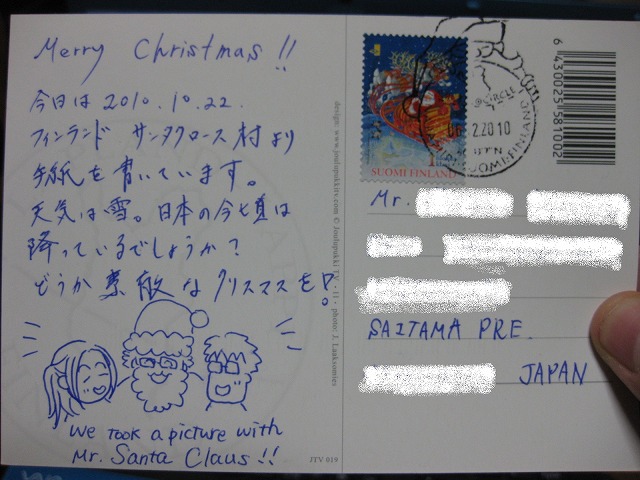 Merry Christmas !!
今日は 2010.10.22.
フィンランド サンタクロース村より
手紙を書いています。
天気は雪。日本の今頃は
降っているでしょうか?
どうか素敵なクリスマスを!
we took a picture with
Mr. Santa Claus !!
design: www.joulupukkitv.com © Joulupukki TV - 11 - photo: J. Laaksomies
JTV 019
SUOMI FINLAND
CIRCLE
2.2010
SUOMI-FINLAND
6 430025 581002
Mr.
SAITAMA PRE.
JAPAN